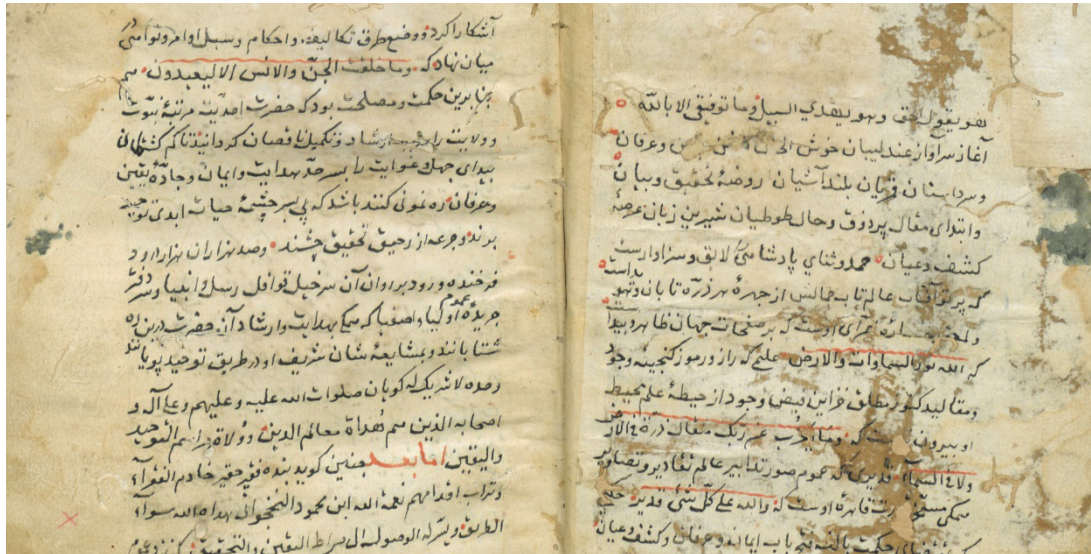 هو یقول الحق وهو یهدی السبیل وما توفیقی الا بالله
آغاز سرآواز عندلیبان خوش الحان وعرفان
وسردستان قمریان بلند آشیان روضهٔ تحقیق وبیان
وابتدای مقال پر ذوق وحال طوطیان شیرین زبان عرصهٔ
کشف وعیان حمد وثنای پادشاهی لایق وسزاوارست
که پرتو آفتاب عالم تاب جمالش از چهرهٔ هر ذره تابان وهویداست
اوست که بر صفحات جهان ظاهر وپیدا
که الله نور السماوات والارض علیمی که راز ورموز گنجینهٔ وجود
ومقالید کنوز مطلق خزاین فیض وجود از حیطهٔ علم محیط
او بیرون نیست که وما یعزب عن ربک من مثقال ذرة فی الارض
ولا فی السماء قدیری که عموم صور تدابیر عالم تقادیر وتصاویر
قدرت قاهرهٔ اوست که والله علی کل شیء قدیر
حکمت بالغه فتح باب ایمان وعرفان وکشف وعیان
آشکارا کرد ووضع طرق تکالیف واحکام وسبل اوامر ونواهی در
میان نهاد که وما خلقت الجن والانس الا لیعبدون هم
بنابرین حکمت ومصلحت بود که حضرت احدیت مرتبهٔ نبوت
وولایت را ارشاد وتکمیل ناقصان گردانید تا گم گشتگان
بیدای جهل وغوایت را بسرحد هدایت وایمان وجادهٔ یقین
وعرفان ره نمونی کنند باشد که پی بسر چشمهٔ حیات ابدی توحید
برند وجرعه از رحیق تحقیق چشند وصد هزاران هزار درود
فرخنده ورود بر روان آن سرخیل قوافل رسل وانبیا وسر دفتر
جریدهٔ عموم اولیا واصفیا که همه بهدایت وارشاد آن حضرت درین ره
شتابانند وبمشایعهٔ شان شریف او در طریق توحید پویانند
وحده لا شریک له گویان صلوات الله علیه وعلیهم وعلی آله و
اصحابه الذین هم هداة معالم الدین وولاة مراسم التوحید
والیقین اما بعد چنین گوید بنده فقیر حقیر خادم الفقراء
وتراب اقدامهم نعمة الله ابن محمود النخجوانی هداه الله سواء
الطریق ویسر له الوصول الی صراط الیقین والتحقیق